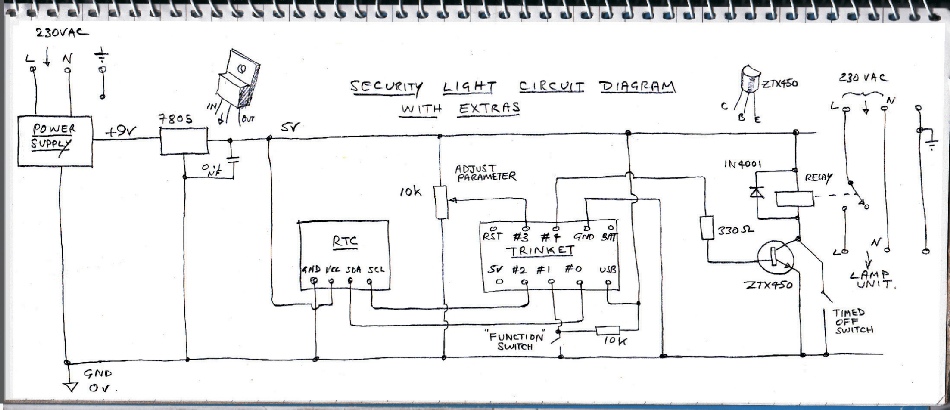 230VAC
L N
POWER
SUPPLY
+9V
7805
IN
OUT
5V
SECURITY LIGHT CIRCUIT DIAGRAM
WITH EXTRAS
C
B
E
ZTX450
230 VAC
L N
10K
ADJUST
PARAMETER
1N4001
RELAY
330Ω
RTC
GND VCC SDA SCL
RST #3 #4 GND BAT
TRINKET
5V #2 #1 #0 USB
ZTX450
L N
LAMP
UNIT.
"FUNCTION"
SWITCH
10K
TIMED
OFF
SWITCH
GND
0V.